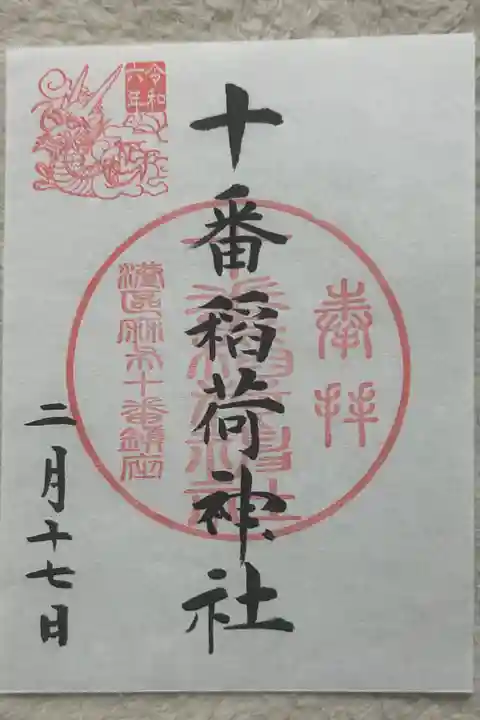 奉拝
十番稲荷神社
港区麻布十番鎮座
令和
六年
二月十七日